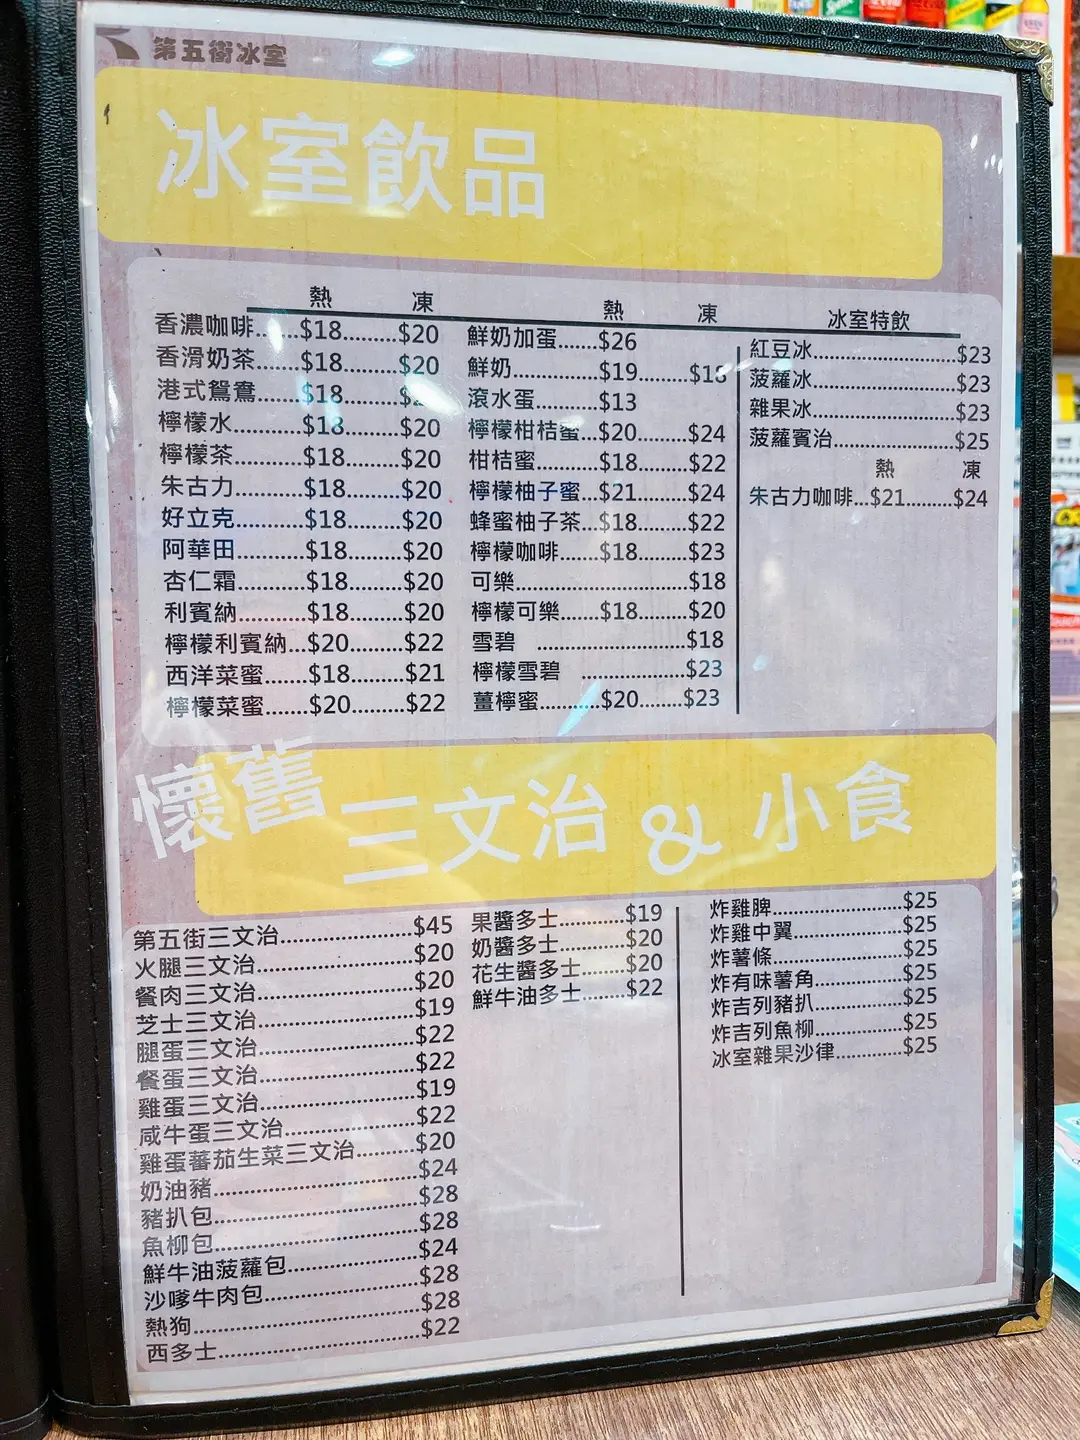 第五街冰室
冰室飲品
熱 凍
香濃咖啡......$18.........$20
香滑奶茶......$18.........$20
港式鴛鴦......$18.........
檸檬水.........$18.........$20
檸檬茶.........$18.........$20
朱古力.........$18.........$20
好立克.........$18.........$20
阿華田.........$18.........$20
杏仁霜.........$18.........$20
利賓納.........$18.........$20
檸檬利賓納...$20.........$22
西洋菜蜜......$18.........$21
檸檬菜蜜......$20.........$22
熱 凍
鮮奶加蛋......$26
鮮奶............$19.........$18
滾水蛋.........$13
檸檬柑桔蜜...$20.........$24
柑桔蜜.........$18.........$22
檸檬柚子蜜...$21.........$24
蜂蜜柚子茶...$18.........$22
檸檬咖啡......$18.........$23
可樂.....................$18
檸檬可樂......$18.........$20
雪碧 .....................$18
檸檬雪碧 ..................$23
薑檸蜜...........$20.........$23
冰室特飲
紅豆冰.....................$23
菠蘿冰.....................$23
雜果冰.....................$23
菠蘿賓治..................$25
熱 凍
朱古力咖啡...$21.........$24
懷舊三文治 & 小食
第五街三文治..................$45
火腿三文治.....................$20
餐肉三文治.....................$20
芝士三文治.....................$19
腿蛋三文治.....................$22
餐蛋三文治.....................$22
雞蛋三文治.....................$19
咸牛蛋三文治..................$22
雞蛋蕃茄生菜三文治.........$20
奶油豬...........................$24
豬扒包...........................$28
魚柳包...........................$28
鮮牛油菠蘿包..................$24
沙嗲牛肉包.....................$28
熱狗..............................$28
西多士...........................$22
果醬多士.........$19
奶醬多士.........$20
花生醬多士......$20
鮮牛油多士......$22
炸雞脾..................$25
炸雞中翼...............$25
炸薯條..................$25
炸有味薯角............$25
炸吉列豬扒............$25
炸吉列魚柳............$25
冰室雜果沙律.........$25